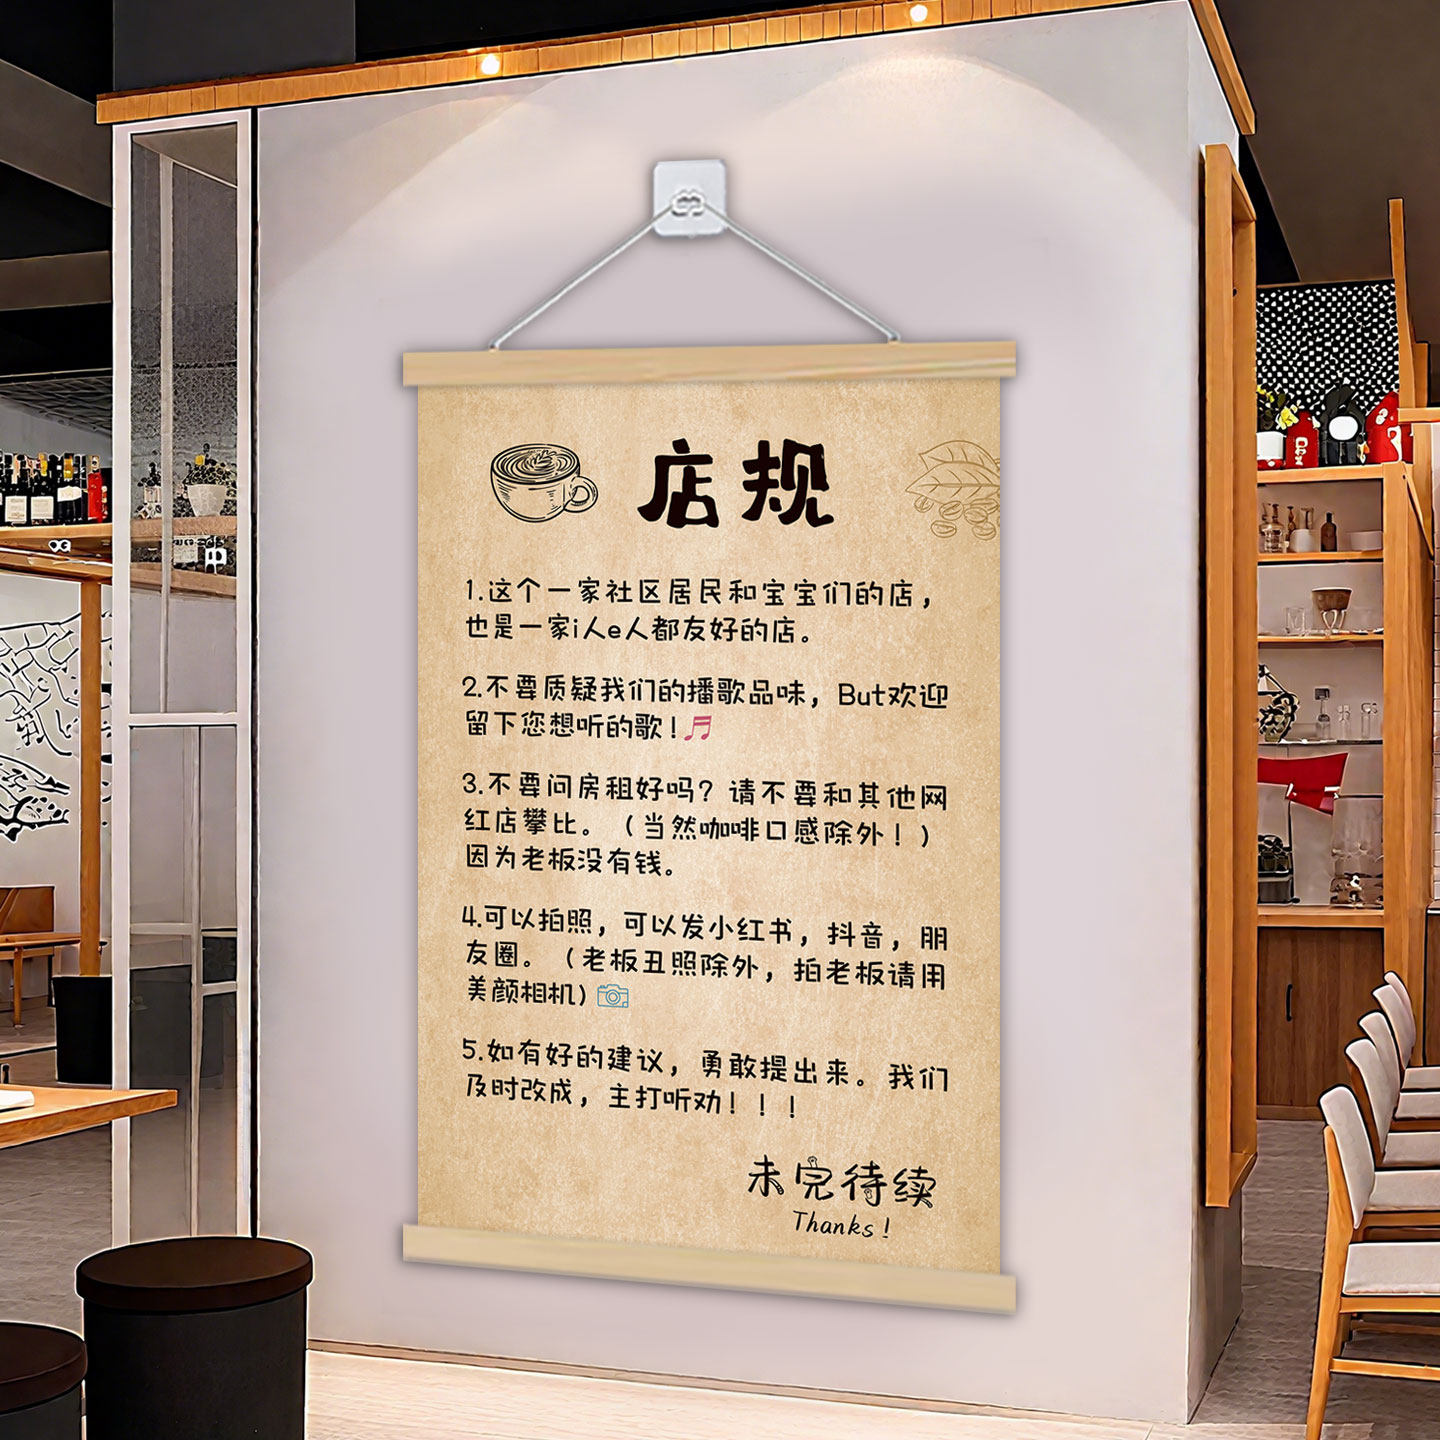 店规
1.这个一家社区居民和宝宝们的店，
也是一家i人e人都友好的店。
2.不要质疑我们的播歌品味，But欢迎
留下您想听的歌！
3.不要问房租好吗？请不要和其他网
红店攀比。（当然咖啡口感除外！）
因为老板没有钱。
4.可以拍照，可以发小红书，抖音，朋
友圈。（老板丑照除外，拍老板请用
美颜相机）
5.如有好的建议，勇敢提出来。我们
及时改成，主打听劝！！！
未完待续
Thanks！